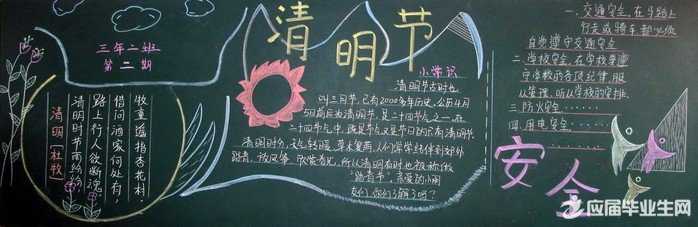 三年二班
第二期
清明节
清明 [杜牧]
清明时节雨纷纷
路上行人欲断魂
借问酒家何处有，
牧童遥指杏花村.
小常识
清明节古时也
叫三月节，已有2000多年历史，公历4月
5日前后为清明节，是二十四节气之一，在
二十四节气中，既是节气又是节日的只有清明节.
清明时分，天气转暖，草木复萌，人们常常结伴到郊外
踏青，放风筝，欣赏春光，所以清明有时也被称做
"踏青节"，亲爱的小朋
友们，你们了解了吗？
一、交通安全，在马路上
行走或骑车都必须
自觉遵守交通安全
二、学校安全，在学校要遵
守学校的各项纪律，服
从管理，听从学校的安排.
三、防火安全
四、用电安全
安全
应届毕业生网